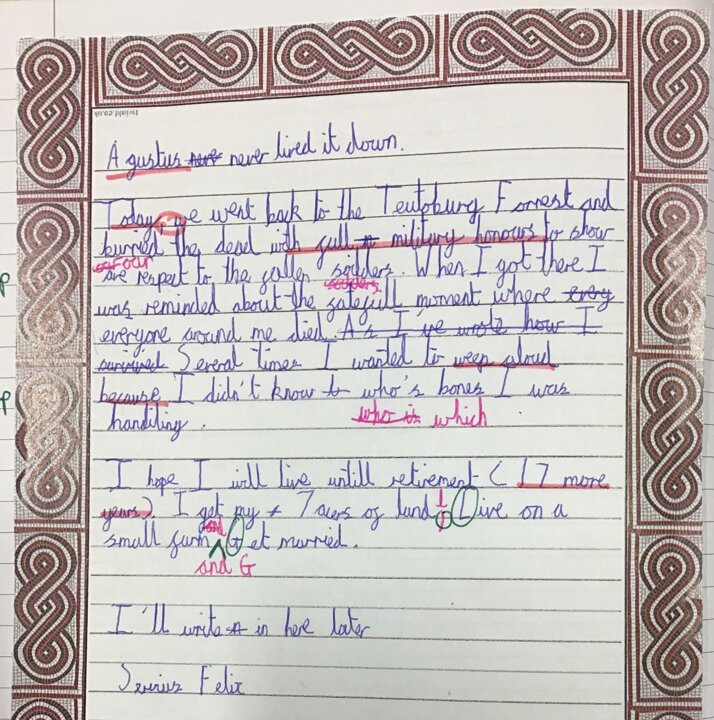 twinkl.co.uk
Agustus never lived it down.
Today, we went back to the Teutoburg Forrest and
burried the dead with full military honours to show
our
are respect to the fallen solders. When I got there I
solders
was reminded about the fatefull moment where every
everyone around me died. As I've wrote how I
survived Several times I wanted to weep aloud
because I didn't know who's bones I was
handiling. who is which
I hope I will live untill retirement (17 more
years). I get my 7 acers of land, Live on a
and
small farm Get married.
and G
I'll write in here later
Felix
P
P